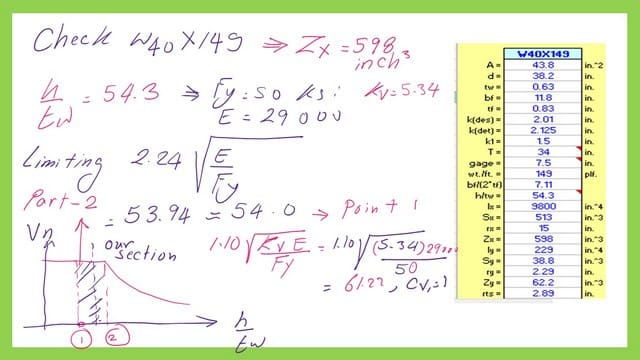 Check W40X149 ⇒ Zx = 598 inch³
h/tw = 54.3 ⇒ Fy = 50 ksi Kv = 5.34
E = 29000
Limiting 2.24 √(E/Fy)
Part-2
= 53.94 ≈ 54.0 → Point 1
Vn
our section
1.10 √(KvE/Fy) = 1.10 √((5.34)29000/50)
= 61.22, Cv1=1
1 2
h/tw
W40X149
A = 43.8 in.^2
d = 38.2 in.
tw = 0.63 in.
bf = 11.8 in.
tf = 0.83 in.
k(des) = 2.01 in.
k(det) = 2.125 in.
k1 = 1.5 in.
T = 34 in.
gage = 7.5 in.
wt./ft. = 149 plf.
bf/(2*tf) = 7.11
h/tw = 54.3
Ix = 9800 in.^4
Sx = 513 in.^3
rx = 15 in.
Zx = 598 in.^3
Iy = 229 in.^4
Sy = 38.8 in.^3
ry = 2.29 in.
Zy = 62.2 in.^3
rts = 2.89 in.